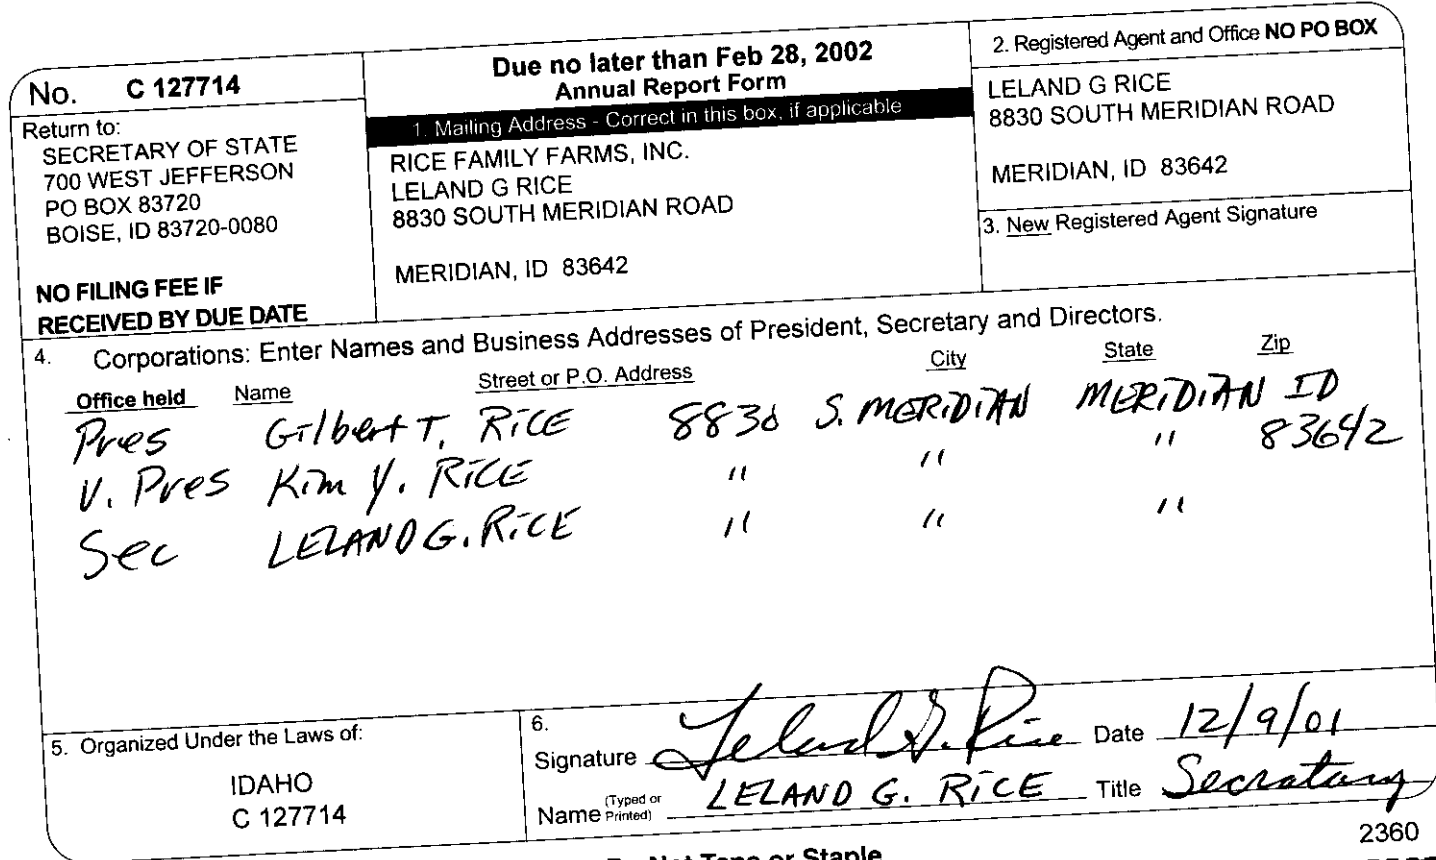 No. C 127714
Return to:
SECRETARY OF STATE
700 WEST JEFFERSON
PO BOX 83720
BOISE, ID 83720-0080
NO FILING FEE IF
RECEIVED BY DUE DATE
Due no later than Feb 28, 2002
Annual Report Form
1. Mailing Address - Correct in this box, if applicable
RICE FAMILY FARMS, INC.
LELAND G RICE
8830 SOUTH MERIDIAN ROAD
MERIDIAN, ID 83642
2. Registered Agent and Office NO PO BOX
LELAND G RICE
8830 SOUTH MERIDIAN ROAD
MERIDIAN, ID 83642
3. New Registered Agent Signature
4. Corporations: Enter Names and Business Addresses of President, Secretary and Directors.
Office held Name Street or P.O. Address City State Zip
Pres Gilbert T. RICE 8830 S. MERIDIAN MERIDIAN ID
83642
V. Pres Kim Y. RICE " " "
Sec LELAND G. RICE " " "
5. Organized Under the Laws of:
IDAHO
C 127714
6.
Signature Leland G. Rice Date 12/9/01
Name (Typed or Printed) LELAND G. RICE Title Secratary
2360
Do Not Tape or Staple